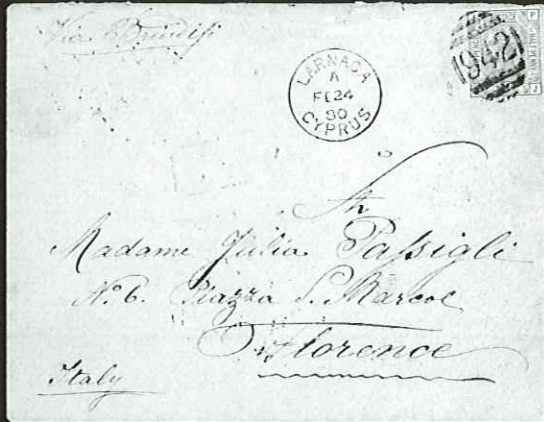 Via Brindisi
942
LARNACA
A
FE 24
80
CYPRUS
P
J
Madame Julia Passigli
No. 6. Piazza S. Marcoe
Florence
Italy